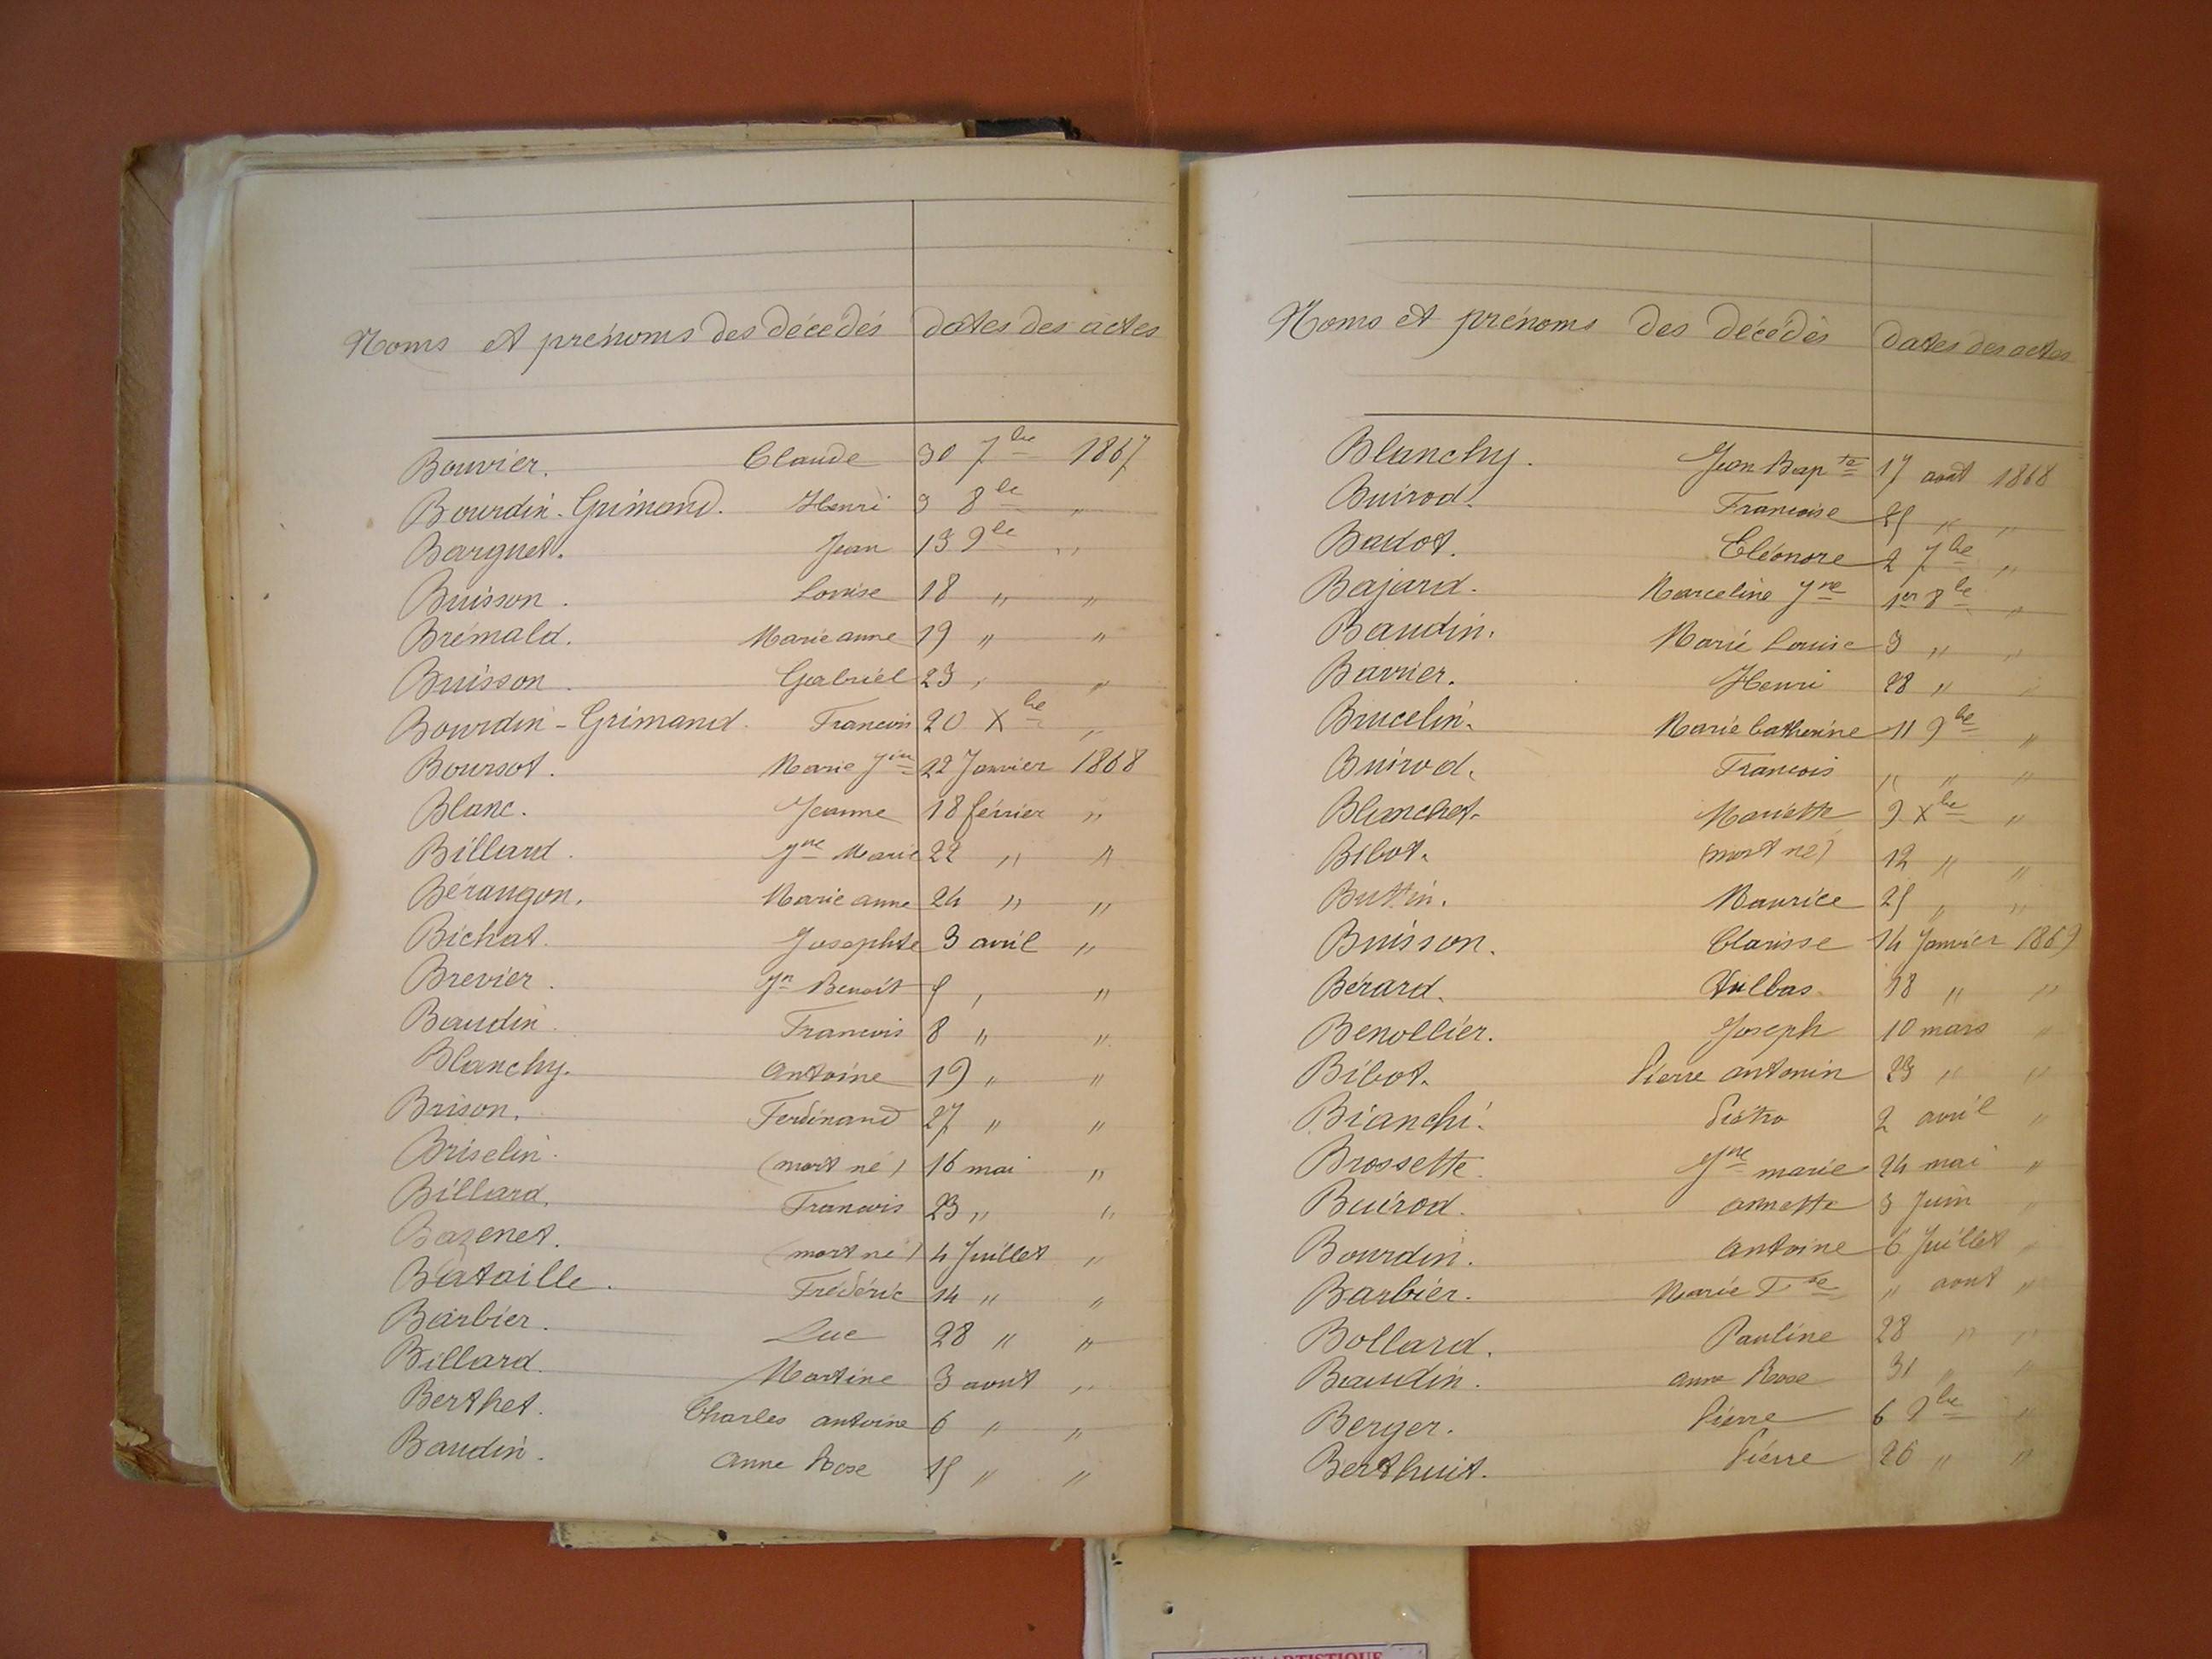 Noms et prénoms des décédés dates des actes
Bouvier. Claude 30 7bre 1867
Bourdin-Grimand. Henri 3 8bre "
Barguet. Jean 13 9bre "
Buisson. Louise 18 " "
Brémald. Marie anne 19 " "
Buisson. Gabriel 23 " "
Bourdin-Grimand. Francois 20 Xbre "
Boursot. Marie Jine 22 Janvier 1868
Blanc. Jeanne 18 février "
Billard. Jne Marie 22 " "
Bérangon. Marie anne 24 " "
Bichat. Josephte 3 avril "
Brevier. Jn Benoit 5 " "
Baudin. Francois 8 " "
Blanchy. antoine 19 " "
Brison. Ferdinand 27 " "
Briselin. (mort né) 16 mai "
Billard. Francois 23 " "
Bazenet. (mort né) 4 Juillet "
Bataille. Frédéric 14 " "
Barbier. Luc 28 " "
Billard. Martine 3 aout "
Berthet. Charles antoine 6 " "
Baudin. anne Rose 15 " "
Noms et prénoms des décédés dates des actes
Blanchy. Jean Bapte 17 aout 1868
Buirod. Francoise 25 " "
Badot. Eléonore 2 7bre "
Bajard. Marceline Jne 1er 8bre "
Baudin. Marie Louise 3 " "
Barrier. Henri 28 " "
Brucelin. Marie Catherine 11 9bre "
Buirod. Francois " " "
Blanchet. Mariette 9 Xbre "
Bibot. (mort né) 12 " "
Buttin. Maurice 25 " "
Buisson. Clarisse 14 Janvier 1869
Bérard. 18 " "
Benollier. Joseph 10 mars "
Bibot. Pierre antonin 23 " "
Bianchi. Piétro 2 avril "
Brossette. Jne marie 24 mai "
Buirod. annette 3 Juin "
Bourdin. antoine 6 Juillet "
Barbier. Marie Tse " aout "
Bollard. Pauline 28 " "
Baudin. anne Rose 31 " "
Berger. Pierre 6 9bre "
Berthuit. Pierre 26 " "